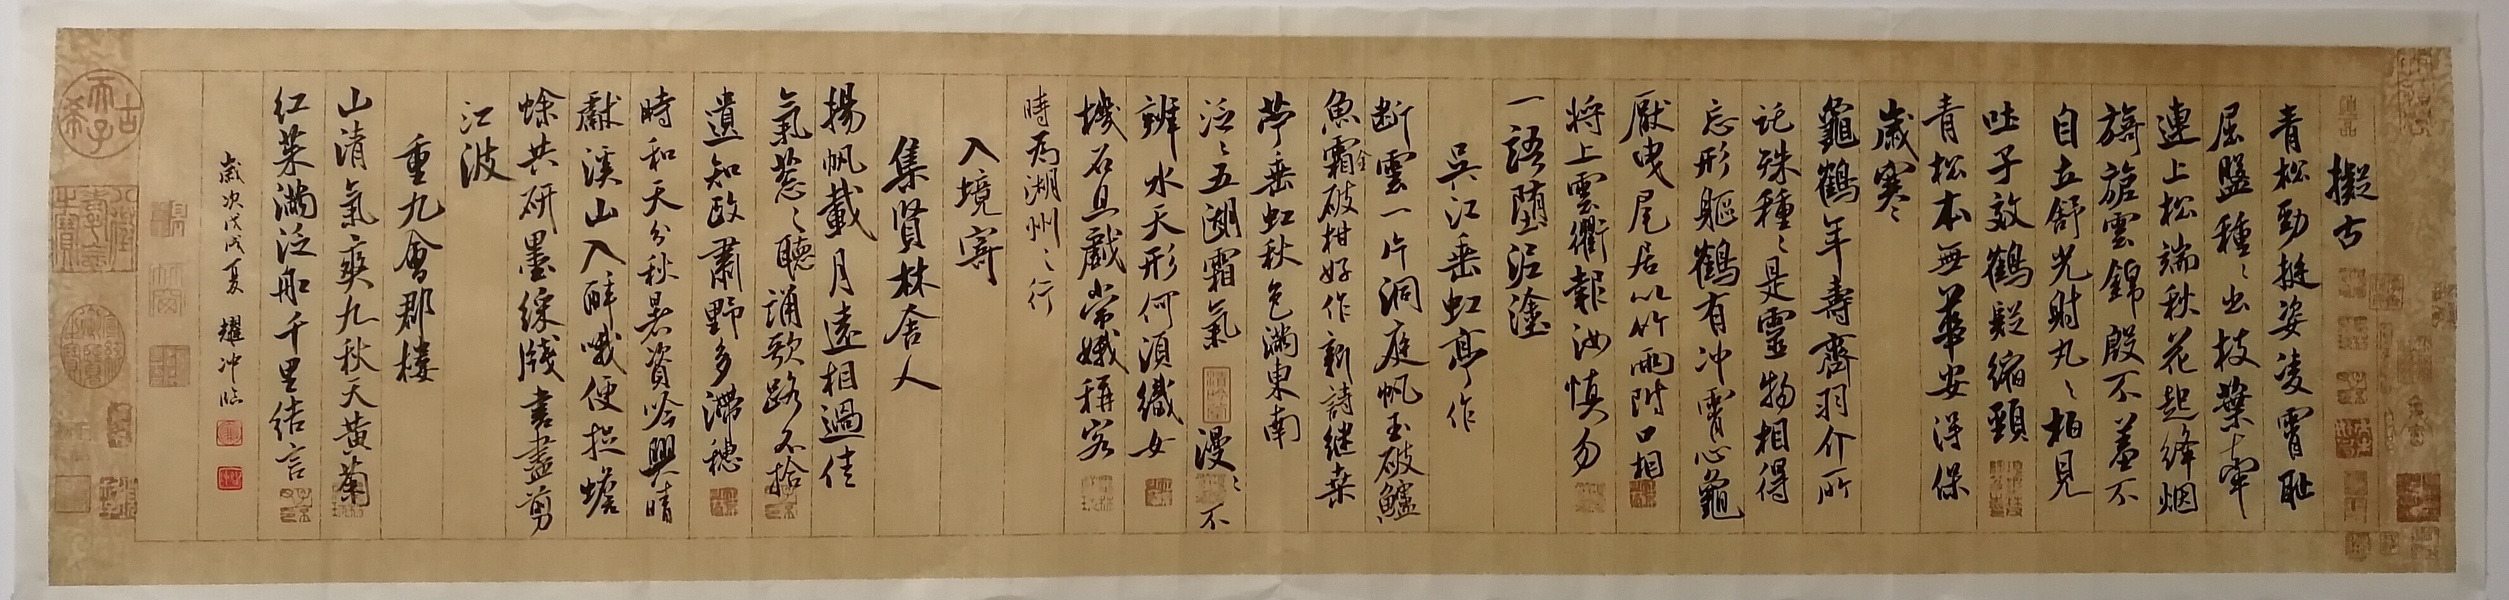 擬古
青松勁挺姿凌霄耻
屈盤種〻出枝葉牽
連上松端秋花起絳烟
旖旎雲錦殷不羞不
自立舒光射丸〻柏見
吐子效鶴疑縮頸
青松本無華安得保
歲寒〻
龜鶴年壽齊羽介所
託殊種〻是靈物相得
忘形軀鶴有冲霄心龜
厭曳尾居以竹兩附口相
将上雲衢報汝慎勿
一語堕泥塗
吳江垂虹亭作
断雲一片洞庭帆玉破鱸
魚霜破柑好作新詩継桑
金
苧垂虹秋色滿東南
泛〻五湖霜氣漫〻不
辨水天形何須織女
機石且戲常娥稱客
時為湖州之行
入境寄
集賢林舍人
揚帆載月遠相過佳
氣葱〻聽誦歌路不拾
遺知政肅野多滯穗
時和天分秋暑資吟興晴
獻溪山入醉哦便捉蟾
蜍共研墨綵牋書盡剪
江波
重九會郡樓
山清氣爽九秋天黃菊
紅茱滿泛船千里結言
歲次戊戌夏 耀冲臨
古希天子